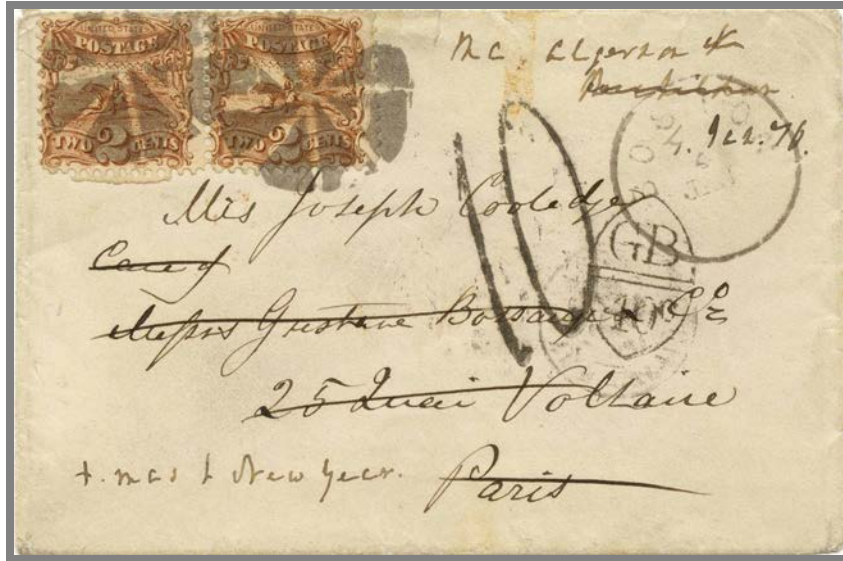 UNITED STATES
POSTAGE
TWO 2 CENTS
UNITED STATES
POSTAGE
TWO 2 CENTS
BOS
JAN
10
GB
40c
Mis Joseph Coolidge
Care of
Messrs Gustave Bossange & Co
25 Quai Voltaire
Paris
New Year.